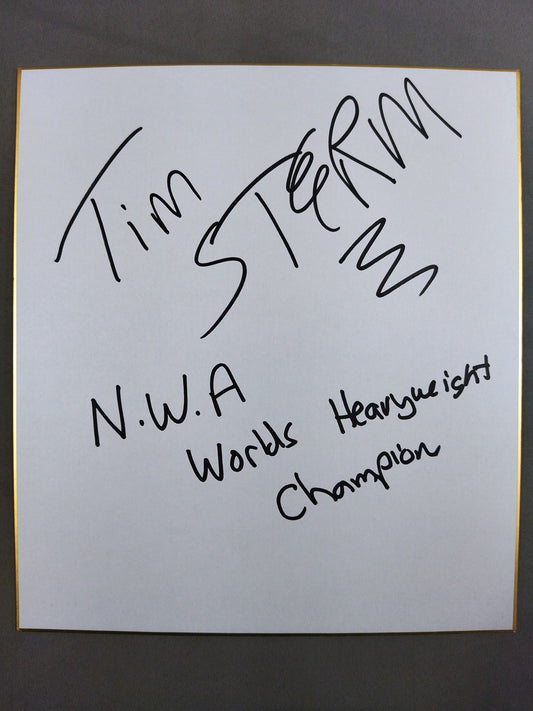 Tim STORM
N.W.A
Worlds Heavyweight
Champion